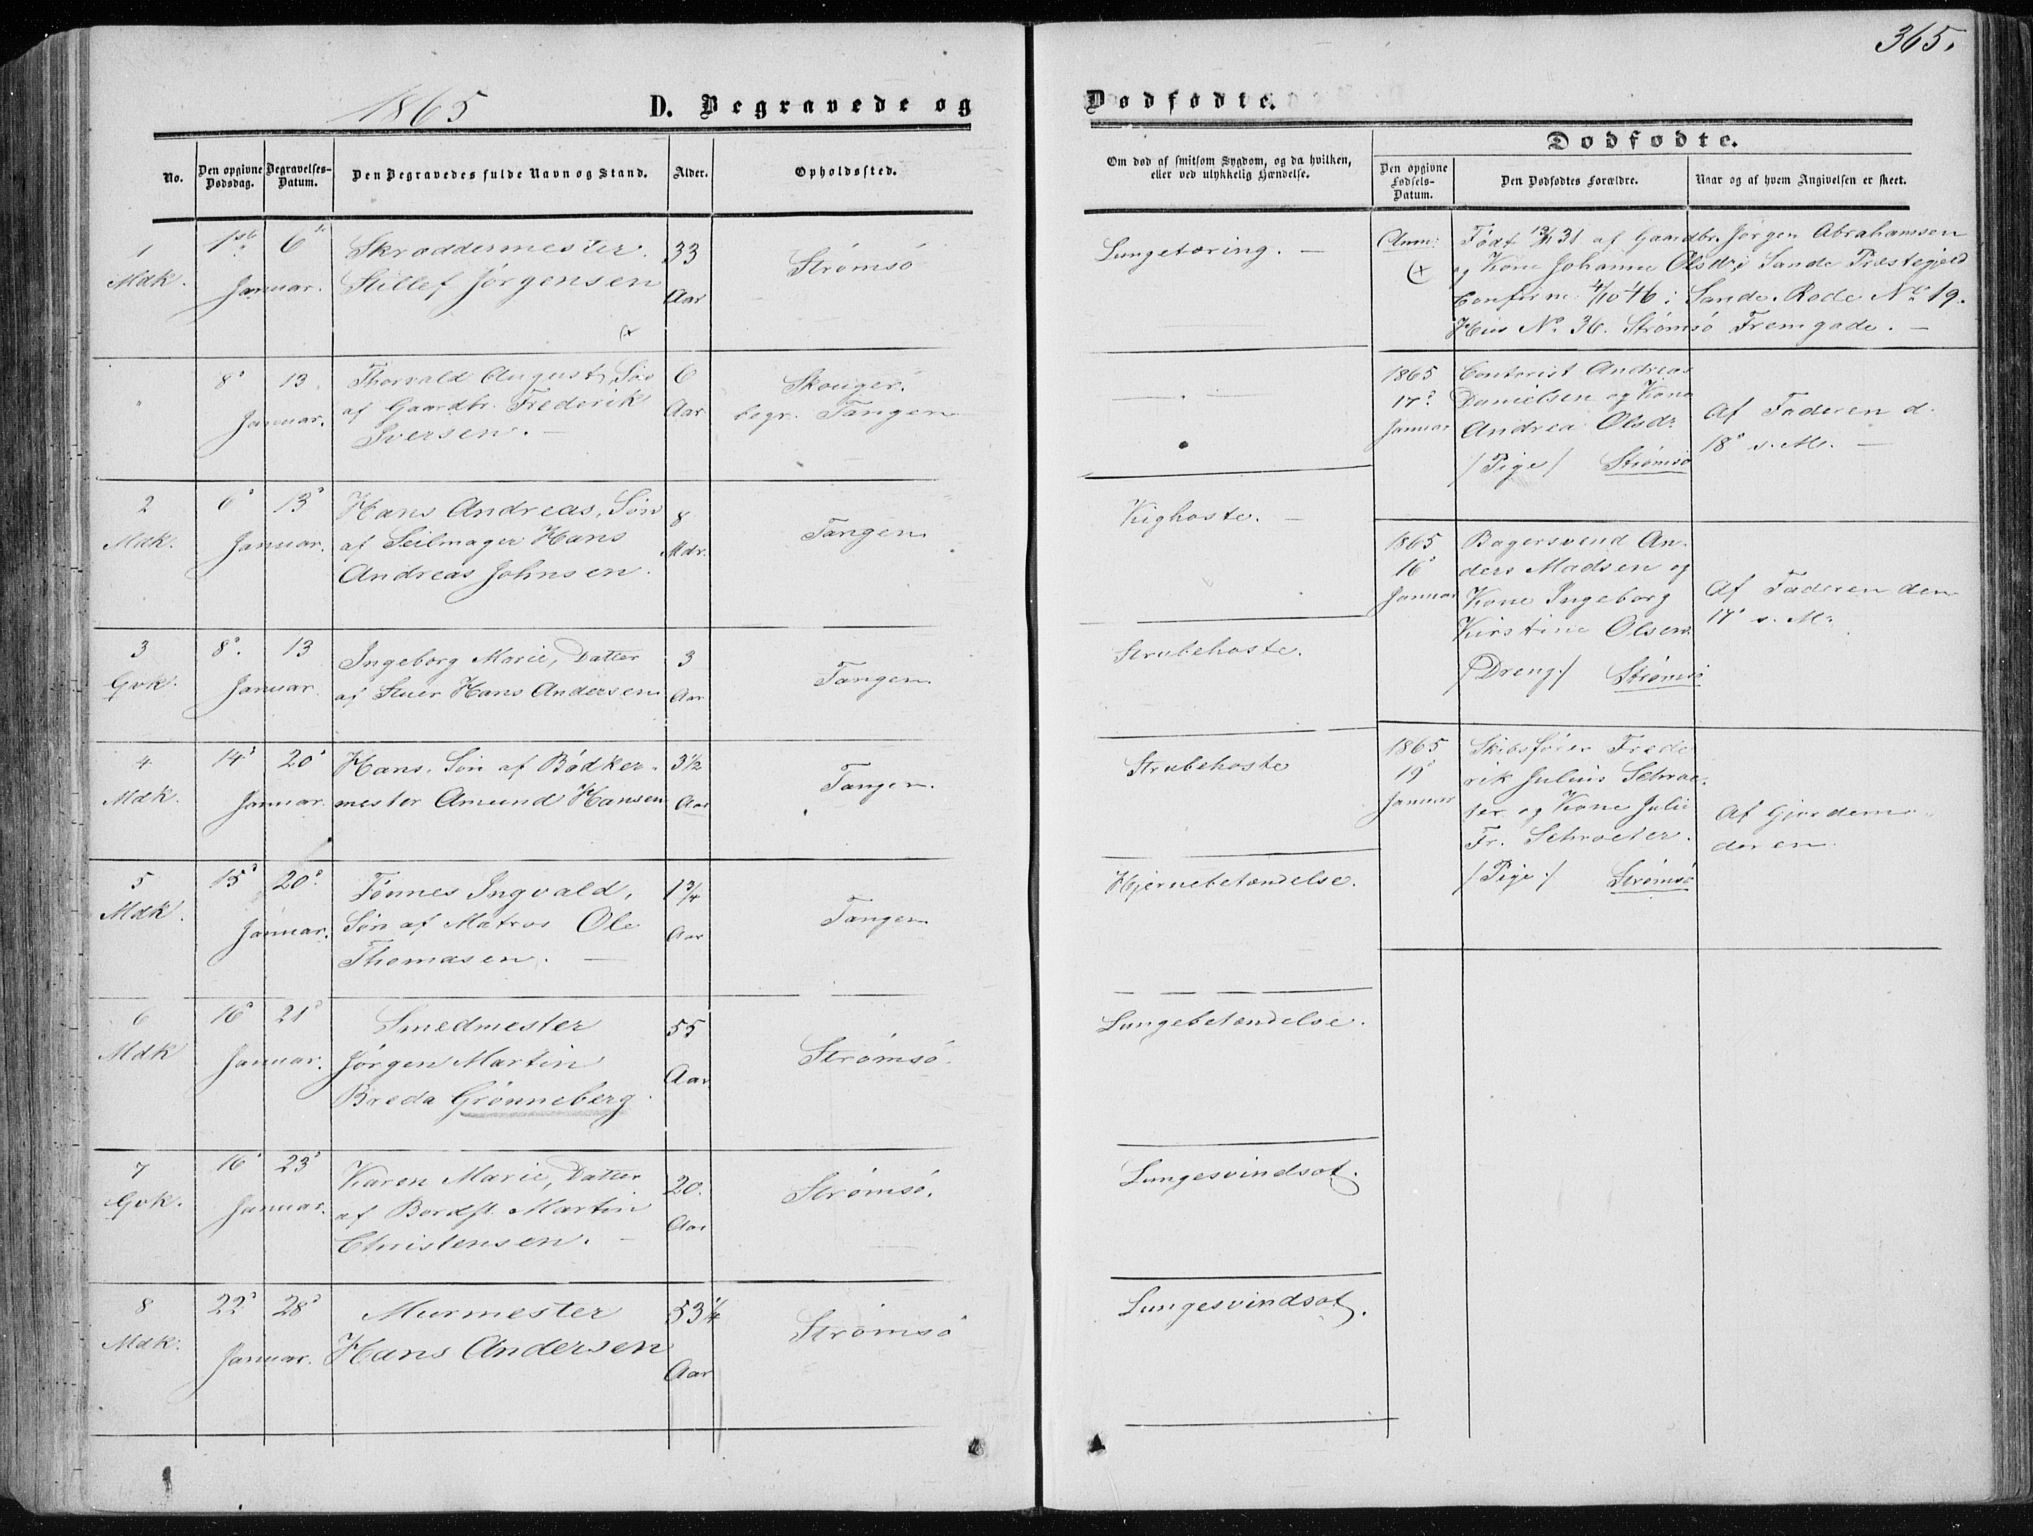 365.
1865
D. Begravede og
Dødfødte.
No.
Den opgivne Dødsdag.
Begravelses-Datum.
Den Begravedes fulde Navn og Stand.
Alder.
Opholdssted.
Om død af smitsom Sygdom, og da hvilken,
eller ved ulykkelig Hændelse.
Dødfødte.
Den opgivne Fødsels-Datum.
Den Dødfødtes Forældre.
Naar og af hvem Angivelsen er skeet.
1 Mdk.
1ste 6te
Januar.
Skræddermester
Stillef Jørgensen
33 Aar
Strømsø
Lungetæring. —
8de 13.
Januar.
Thorvald August, Søn
af Gaardbr. Frederik
Iversen. —
6 Aar
Skouger.
begr. Tangen
2 Mdk.
6de 13de
Januar.
Hans Andreas, Søn
af Seilmager Hans
Andreas Johnsen.
8 Mdr.
Tangen
Kighoste. —
3 Gvk.
8de 13
Januar
Ingeborg Marie, Datter
af Stuer Hans Andersen
3 Aar
Tangen
Strubehoste.
4 Mdk.
14de 20de
Januar.
Hans, Søn af Bødker-
mester Amund Hansen
3½ Aar
Tangen.
Strubehoste
5 Mdk.
15de 20de
Januar.
Tønnes Ingvald,
Søn af Matros Ole
Thomasen. —
1¾ Aar
Tangen
Hjernebetændelse.
6 Mdk
16de 21de
Januar.
Smedmester
Jørgen Martin
Breda Grønneberg.
55 Aar
Strømsø.
Lungebetændelse.
7 Gvk.
16de 23de
Januar.
Karen Marie, Datter
af Bordfl. Martin
Christensen. —
20. Aar
Strømsø.
Lungesvindsot.
8 Mdk.
22de 28de
Januar.
Murmester
Hans Andersen
53¼ Aar
Strømsø
Lungesvindsot.
Anm:
Født 31 af Gaardbr. Jørgen Abrahamsen
og Kone Johanne Olsdr i Sande Præstegjeld
Confirm. 4/10 46 i Sande. Rode No 19.
Huus No. 36. Strømsø Fremgade. —
1865
17de
Januar
Contorist Andreas
Danielsen og Kone
Andrea Olsdr.
/Pige/ Strømsø
Af Faderen d.
18de s. M. —
1865
16de
Januar
Bagersvend An-
ders Madsen og
Kone Ingeborg
Kirstine Olsen.
/Dreng./ Strømsø
Af Faderen den
17de s. M.
1865
19de
Januar
Skibsfører Frede
rik Julius Schroe-
ter og Kone Julie
Fr. Schroeter.
/Pige./ Strømsø
Af Gjordemo-
deren.